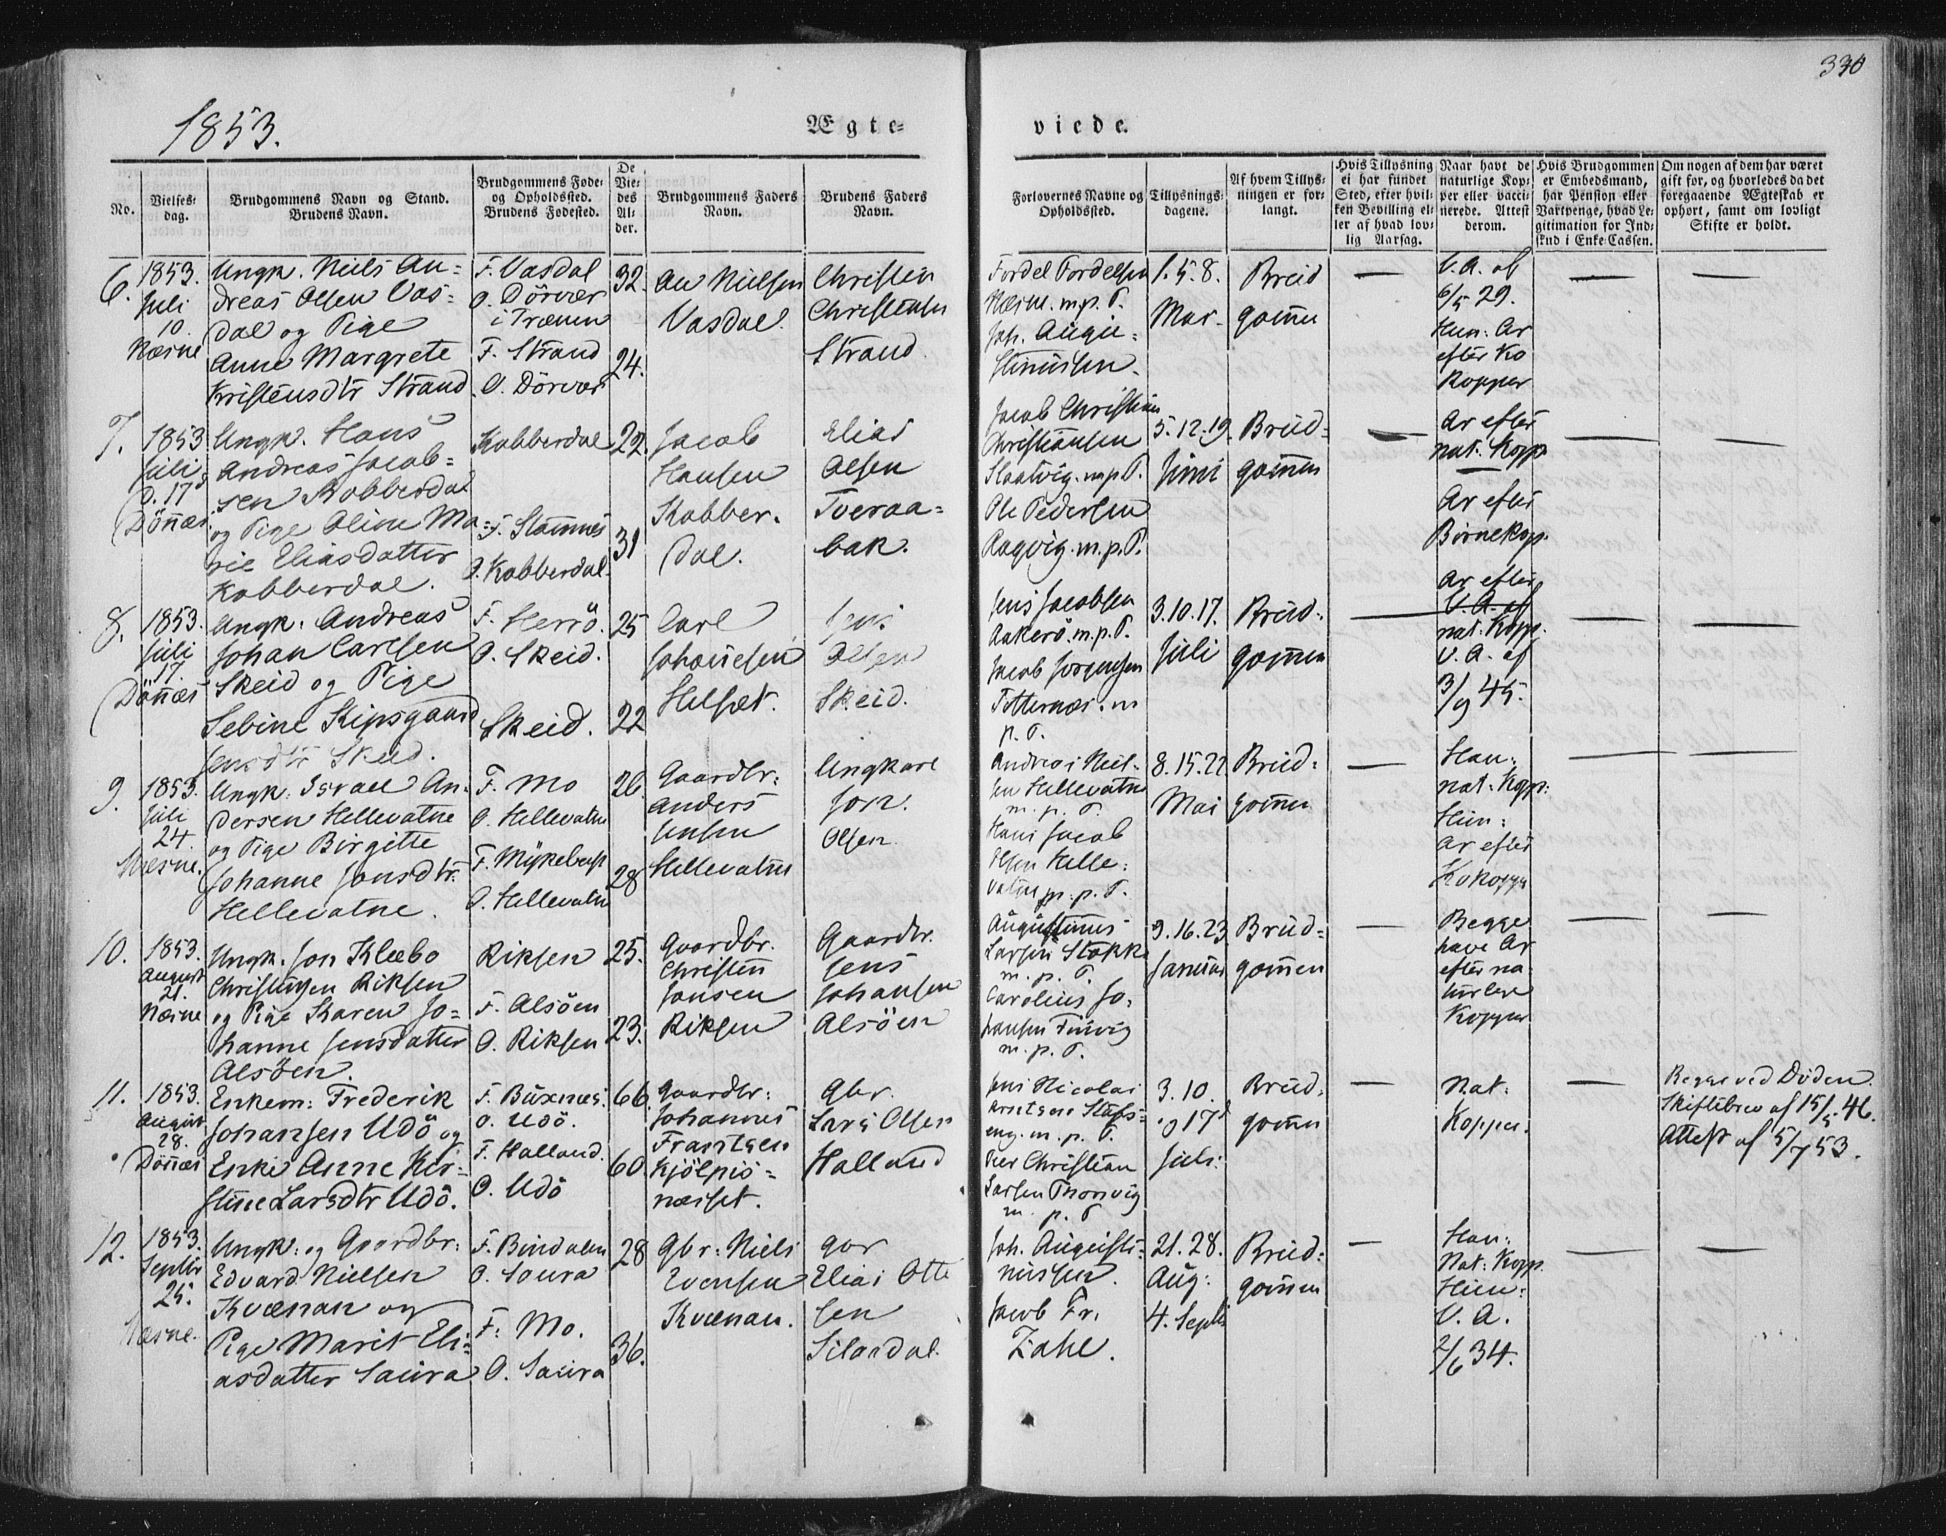 330
1853.
Ægte-
viede.
No.
Vielses-
dag.
Brudgommens Navn og Stand.
Brudens Navn.
Brudgommens Føde-
og Opholdssted.
Brudens Fødested.
De
Vie-
des
Al-
der.
Brudgommens Faders
Navn.
Brudens Faders
Navn.
Forlovernes Navne og
Opholdssted.
Tillysnings-
dagene.
Af hvem Tillys-
ningen er for-
langt.
Hvis Tillysning
ei har fundet
Sted, efter hvil-
ken Bevilling el-
ler af hvad lov-
lig Aarsag.
Naar havt de
naturlige Kop-
per eller vacci-
nerede. Attest
derom.
Hvis Brudgommen
er Embedsmand,
har Pension eller
Vartpenge, hvad Le-
gitimation for Ind-
skud i Enke-Cassen.
Om nogen af dem har været
gift før, og hvorledes da det
foregaaende Ægteskab er
ophørt, samt om lovligt
Skifte er holdt.
6.
1853.
Juli
10.
Næsne
Ungk. Niels An=
dreas Olsen Vas=
dal og Pige
Anne Margrete
Kristensdtr Strand
F. Vasdal
O. Dörvær
i Trænen
F. Strand
O. Dörvær
32.
24.
Nielsen
Vasdal.
Christen
Christensen
Strand.
Fordel Fordelsen
Næsne. m.p.P.
Joh. Augu=
stinussen.
1. 5. 8.
Mai
Brud
gomen
—
V. A. af
6/5 29.
Hun: Ar
efter Ko
Kopper
—
—
7.
1853
Juli
D. 17
(Dönnæs
Ungk. Hans
Andreas Jacob=
sen Kobberdal
og Pige Oline Ma=
rie Eliasdatter
Kobberdal.
Kobberdal
F. Stamnes
O. Kobberdal.
22.
31
Jacob
Hansen
Kobber.
dal.
Elias
Olsen
Tveraa=
bak.
Jacob Christian
Christiansen
Slaatvig. m.p.P.
Ole Pedersen
Ragvig. m.p.P.
5. 12. 19.
Juni
Brud=
gomen
—
Ar efter
nat. Kopp.
Ar efter
Børnekop.
—
—
8.
1853.
Juli
17.
(Dönnæs
Ungk. Andreas
Johan Carlsen
Skeid og Pige
Sebine Kipsgaard
Jensdtr Skeid.
F. Herrö.
O. Skeid.
Skeid.
25
22
Carl
Johannesen
Helset.
Jens
Olsen
Skeid.
Jens Jacobsen
Aakerö. m.p.P.
Jacob Jörgensen
Totternæs. m
p. P.
3. 10. 17.
Juli
Brud=
gomen
—
Ar efter
V. A. af
nat. Kopp.
V. A. af
3/9 45.
—
—
9.
1853.
Juli
24.
Næsne.
Ungk. Israel An=
dersen Hellevatne
og Pige Birgitte
Johanne Jonsdtr.
Hellevatne.
F. Mo
O. Hellevatne
F. Mykebust
O. Hellevatne
26.
28
Gaardbr:
Anders
Jensen
Hellevatne
Ungkarl
Jon.
Olsen
Andreas Niel=
sen Hellevatne
m. p. P.
Hans Jacob
Olsen Helle=
vatne m. p. P.
8. 15. 22
Mai
Brud=
gomen
—
Han:
nat. Kopp:
Hun:
Ar efter
Kokopper
—
—
10.
1853.
August
21.
Næsne
Ungk. Jon Klæbo
Christensen Riksen
og Pige Karen Jo=
hanne Jensdatter
Alsöen.
Riksen
F. Alsöen
O. Riksen
25.
23.
Gaardbr.
Christen
Jonsen
Riksen
Gaardbr.
Jens
Johansen
Alsöen
Augustinus
Larsen Stokke
m. p. P.
Carolius Jo=
hansen Finvig
m. p. P.
9. 16. 23
Januar
Brud=
gomen
—
Begge
have Ar
efter na=
turlige
Kopper
—
—
11.
1853.
August
28.
(Dönnæs
Enkem: Frederik
Johansen Udö og
Enke Anne Kir=
stine Larsdtr Udö.
F. Buxnæs.
O. Udö.
F. Halland.
O. Udö
66.
60.
Gaardbr:
Johannes
Frantsen
Kjölpiö=
næsset.
Gbr.
Lars Olsen
Halland
Jens Nicolai
m. p. P.
Peer Christian
Larsen Thonvig
m. p. P
3. 10.
og 17d
Juli.
Brud=
gomen
—
Nat:
Kopper.
—
Begge ved Döden.
Skiftebrev af 15/5 46.
Attest af 5/7 53.
12.
1853.
Septbr
25.
Næsne.
Ungk: og Gaardbr:
Edvard Nielsen
Kvænan og
Pige Marit Eli=
asdatter Saura
F. Bindalen
O. Saura
F. Mo.
O. Saura
28
36.
Gbr: Niels
Evensen
Kvænan.
Gbr
Elias Otte
sen
Silardal.
Joh. Augusti=
nussen.
Jacob Fr.
Zahl.
21. 28.
Aug:
4. Septbr
Brud=
gomen
—
Han:
Nat: Kopp.
Hun:
V. A.
2/6 34.
—
—